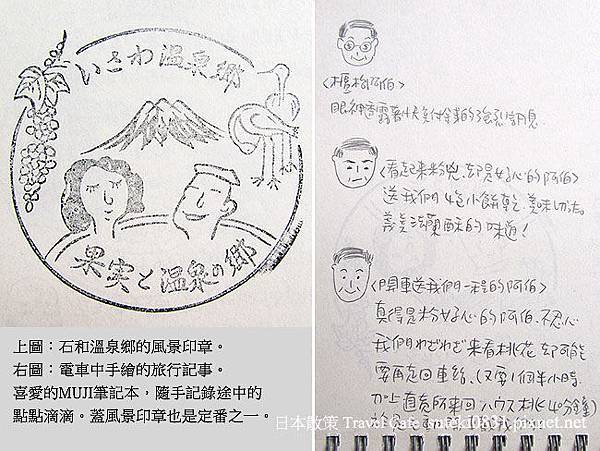 いさわ温泉郷
果実と温泉の郷
上圖：石和溫泉鄉的風景印章。
右圖：電車中手繪的旅行記事。
喜愛的MUJI筆記本，隨手記錄途中的
點點滴滴。蓋風景印章也是定番之一。
<櫃枱阿伯>
眼神透露著
<看起來粉兇，卻是好心的阿伯>
送我們4包小餅乾，美味切法。
義美法蘭酥的味道！
<開車送我們一程的阿伯>
真得是粉好心的阿伯，不忍心
我們わざわざ来看桃花，卻可能
要再走回車站，(又要1個半小時，
加上直売所来回ハウス桃40分鐘)
日本散策 Travel Cafe